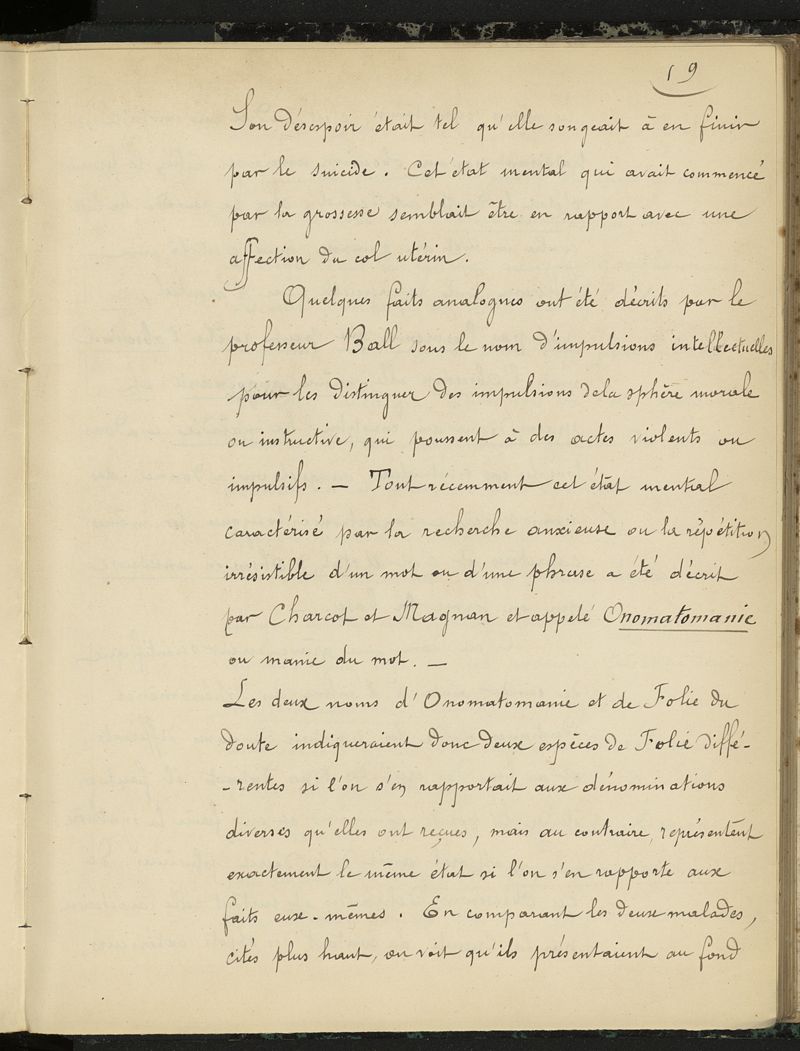 19
Son désespoir était tel qu'elle songeait à en finir
par le suicide. Cet état mental qui avait commencé
par la grossesse semblait être en rapport avec une
affection du col utérin.
Quelques faits analogues ont été décrits par le
professeur Ball sous le nom d'impulsions intellectuelles
pour les distinguer des impulsions de la sphère morale
ou instructive, qui poussent à des actes violents ou
impulsifs. — Tout récemment cet état mental
caractérisé par la recherche anxieuse ou la répétition
irrésistible d'un mot ou d'une phrase a été décrit
par Charcot et Magnan et appelé Onomatomanie
ou manie du mot. —
Les deux noms d'Onomatomanie et de Folie du
doute indiqueraient donc deux espèces de Folie diffé-
-rentes si l'on s'en rapportait aux dénominations
diverses qu'elles ont reçues, mais au contraire, représentent
exactement le même état si l'on s'en rapporte aux
faits eux-mêmes. En comparant les deux malades,
cités plus haut, on voit qu'ils présentaient au fond